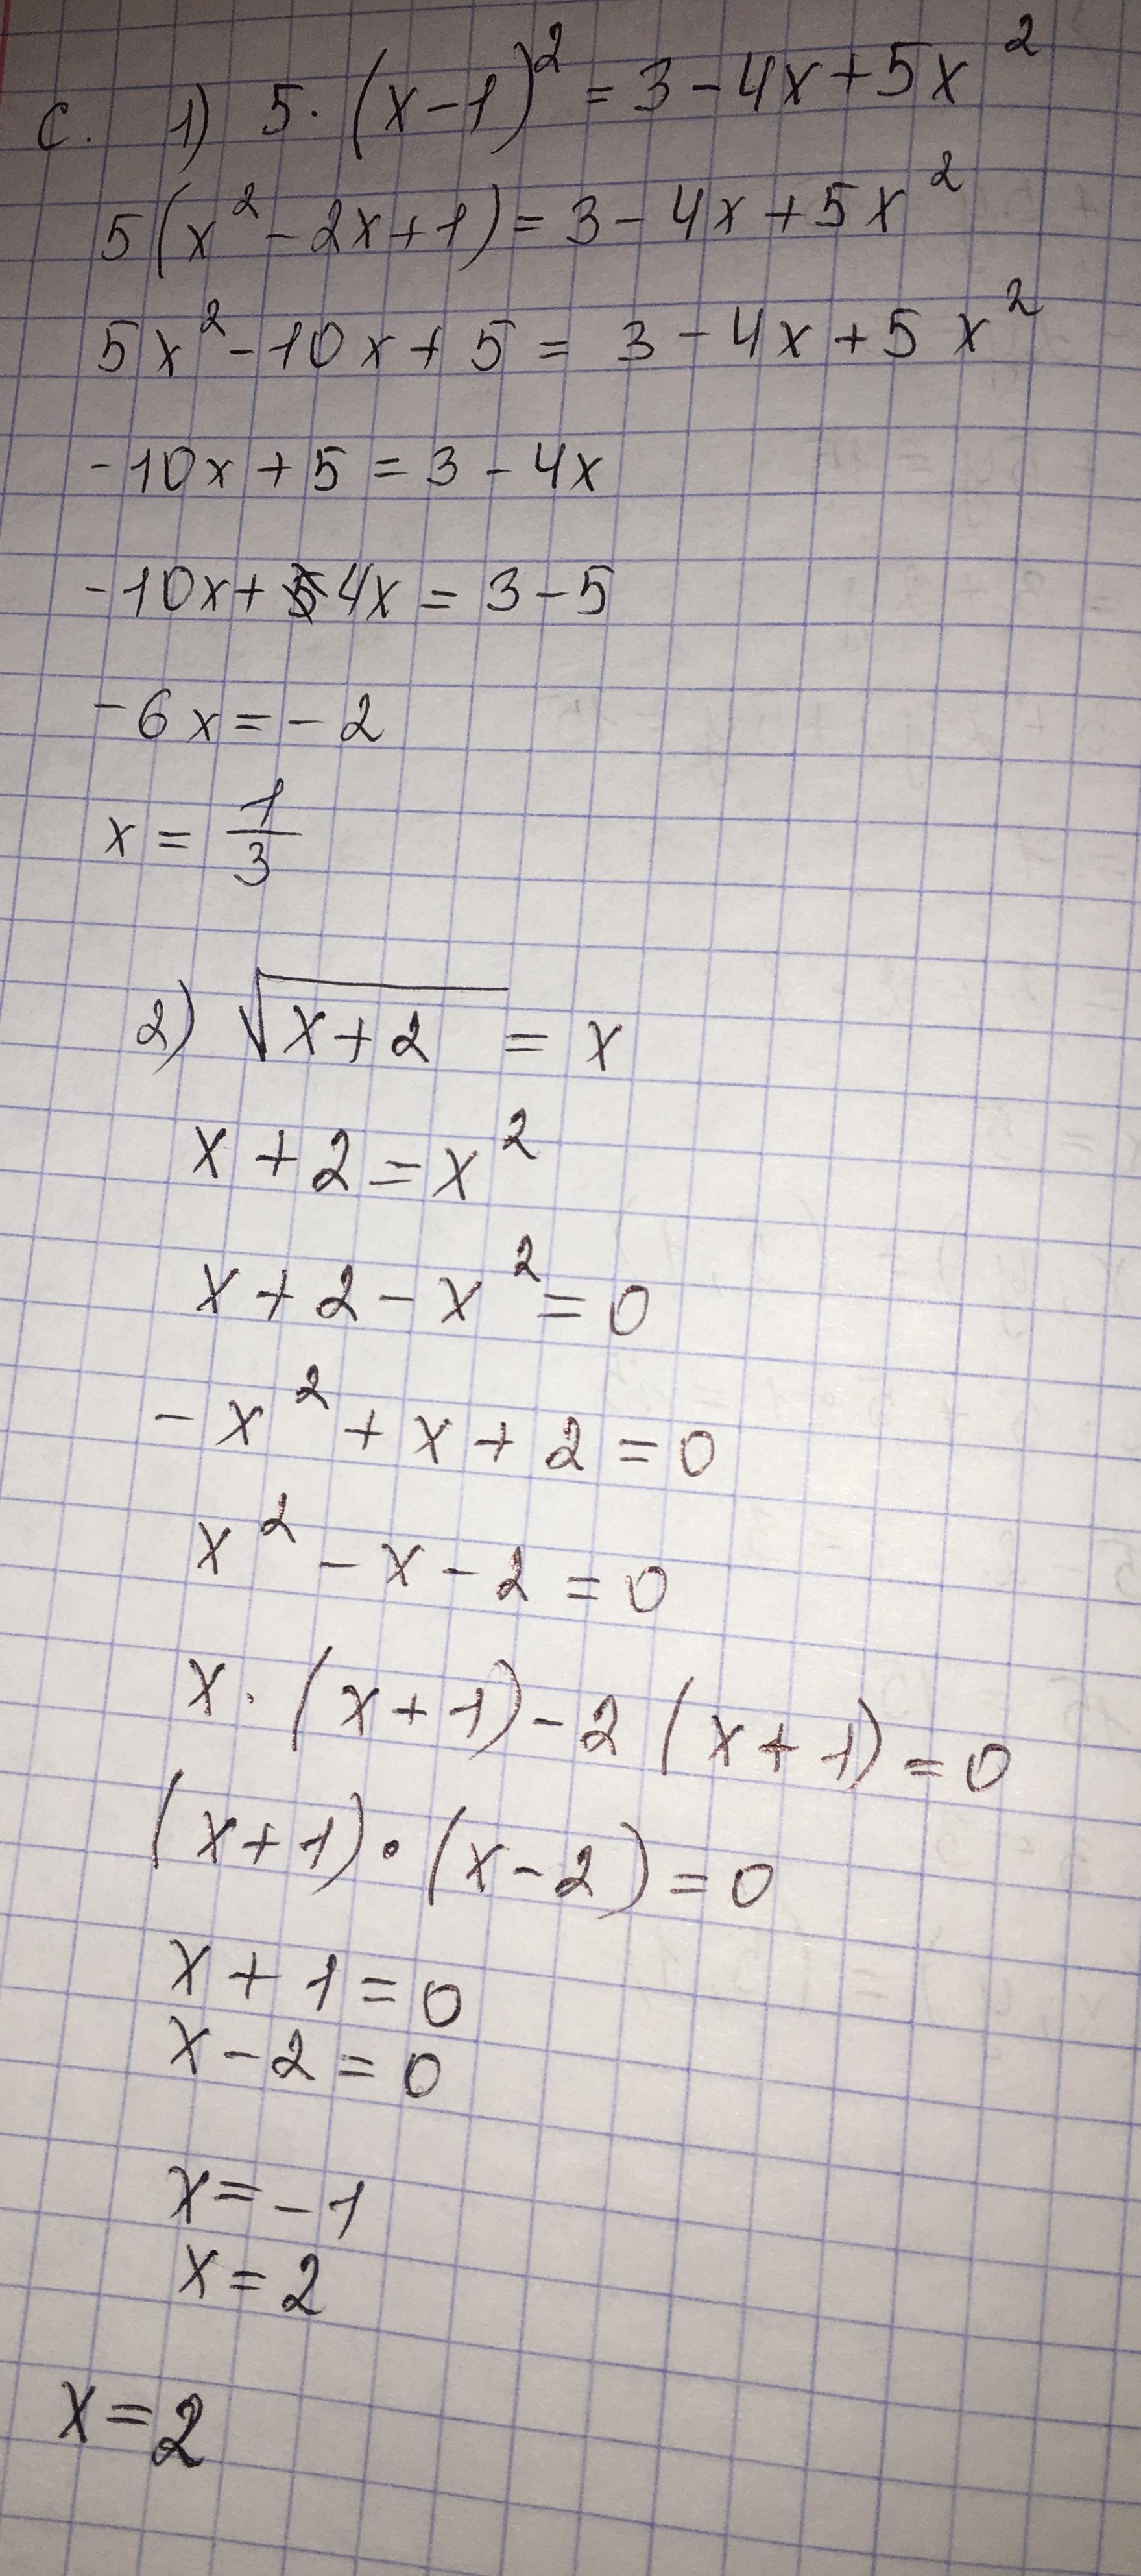 c. 1) 5·(x-1)² = 3-4x+5x²
5(x²-2x+1)=3-4x+5x²
5x²-10x+5=3-4x+5x²
-10x+5=3-4x
-10x+4x=3-5
-6x=-2
x=1/3
2) √(x+2) = x
x+2=x²
x+2-x²=0
-x²+x+2=0
x²-x-2=0
x·(x+1)-2(x+1)=0
(x+1)·(x-2)=0
x+1=0
x-2=0
x=-1
x=2
x=2